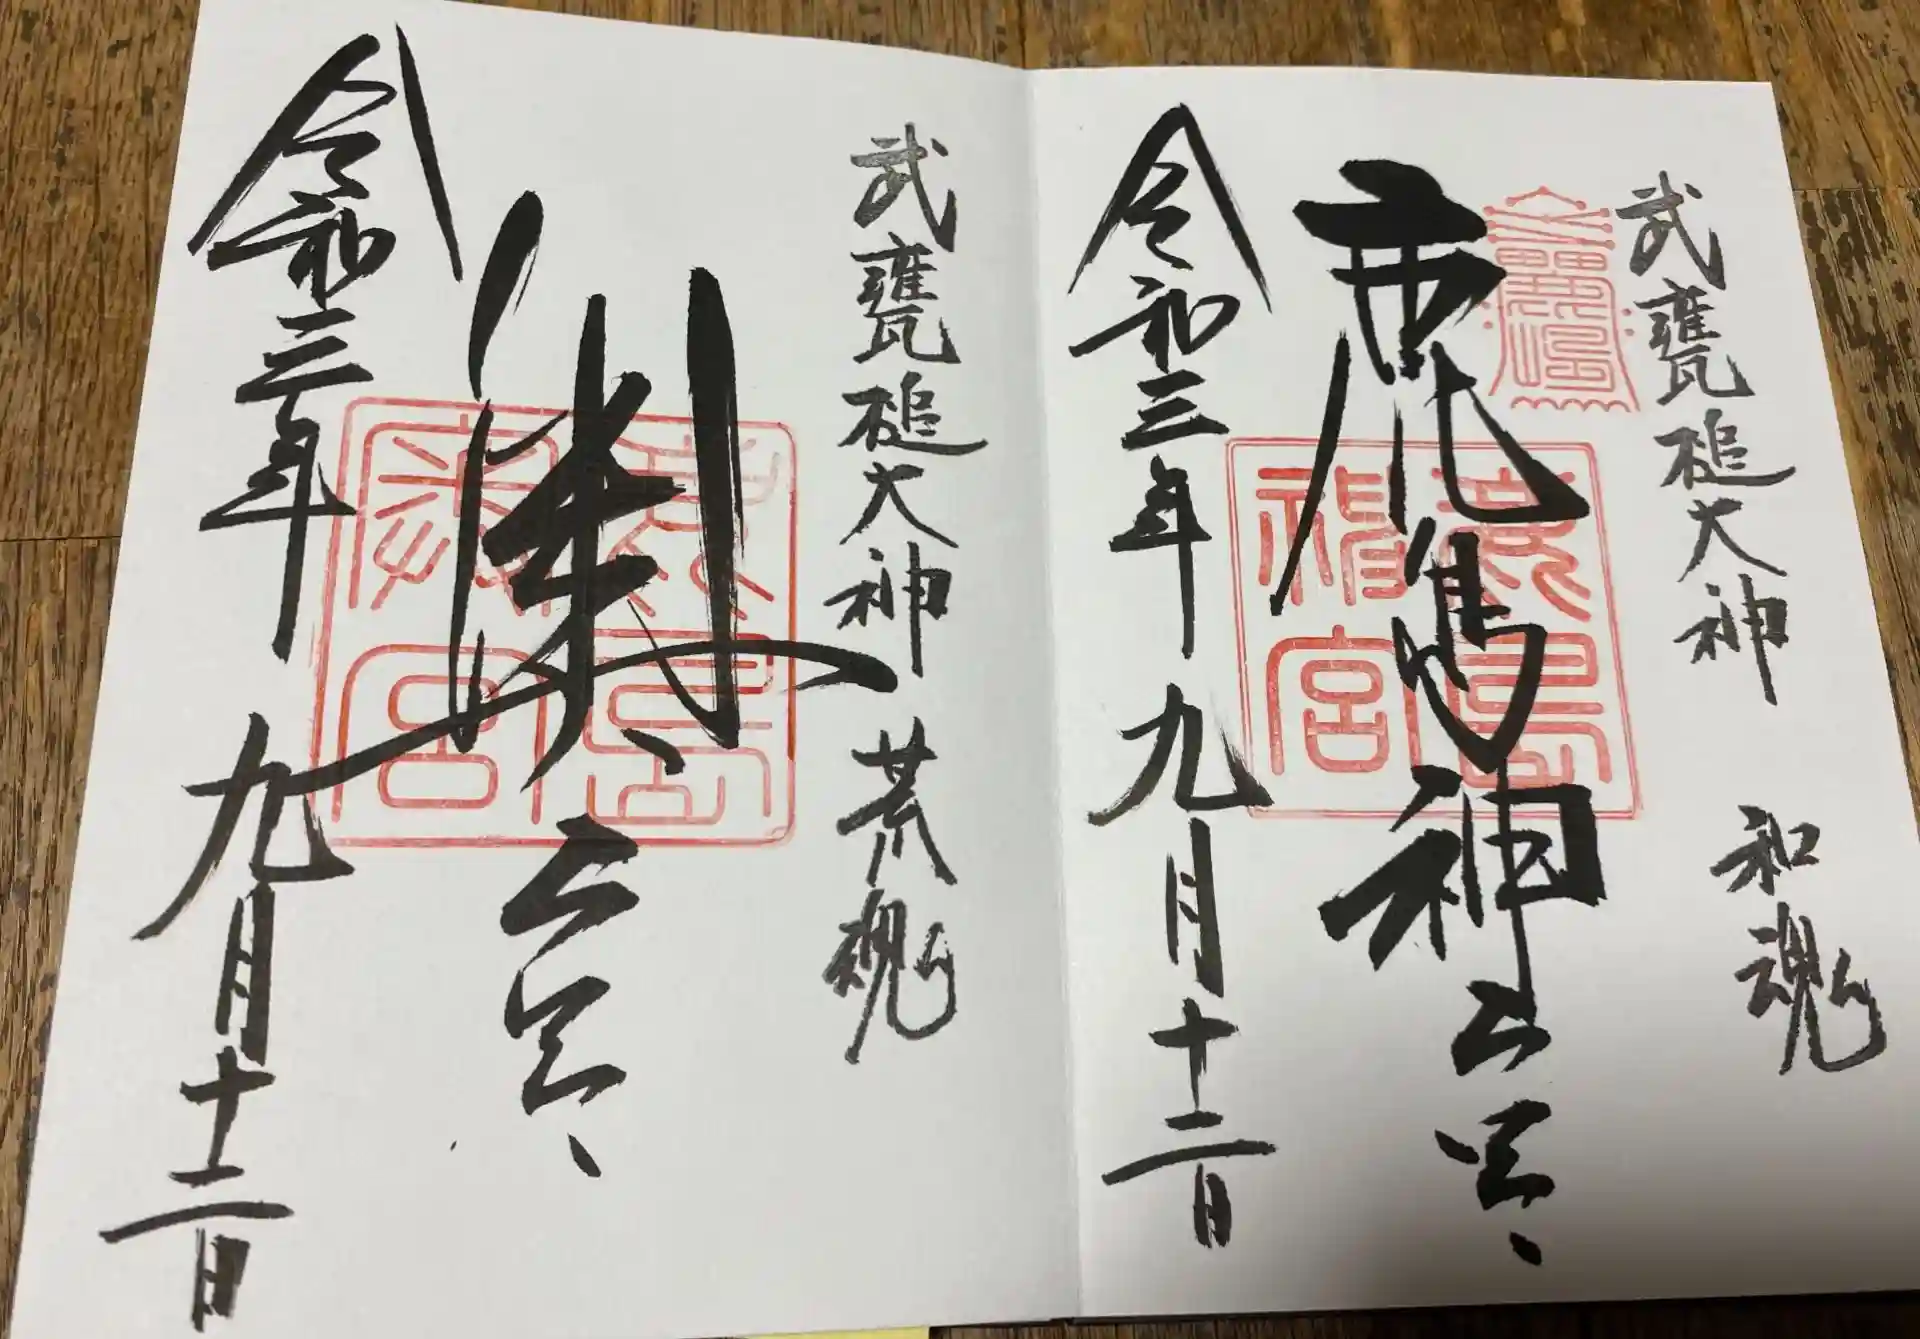 武甕槌大神 和魂
鹿島神宮
鹿島神宮
令和三年九月十二日
武甕槌大神 荒魂
奥宮
鹿島奥宮
令和三年九月十二日